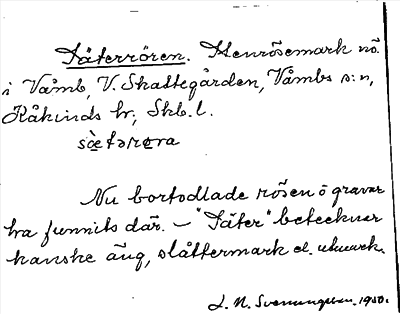 Säterrören. Stenrösemark nö.
i Våmb, V. Skattegården, Våmbs s:n,
Kåkinds hr, Skb. l.
sæ̀tərɶra
Nu bortodlade rösen o gravar
ha funnits där. – "Säter" betecknar
kanske äng, slåttermark el. utmark.
J. N. Svenungsson. 1950.